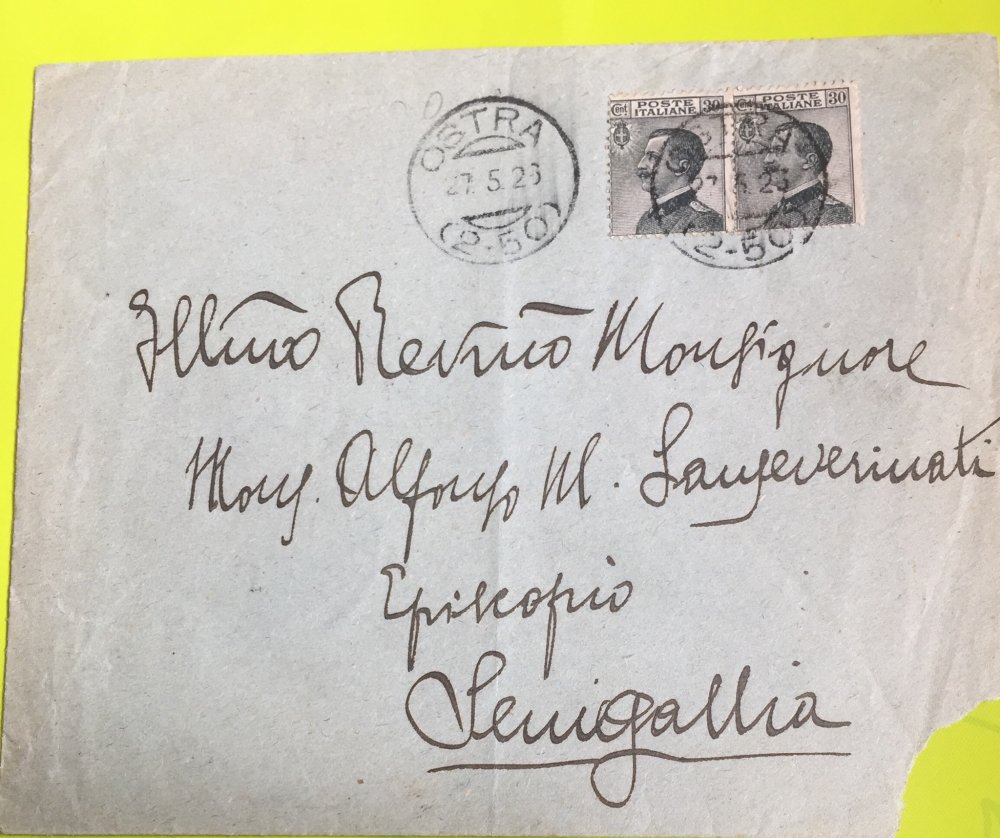 OSTRA
27.5.26
(2-50)
Cent POSTE ITALIANE 30
Cent POSTE ITALIANE 30
Illmo Revmo Monsignore
Mons. Alfonso M. Sanseverinati
Episcopio
Senigallia